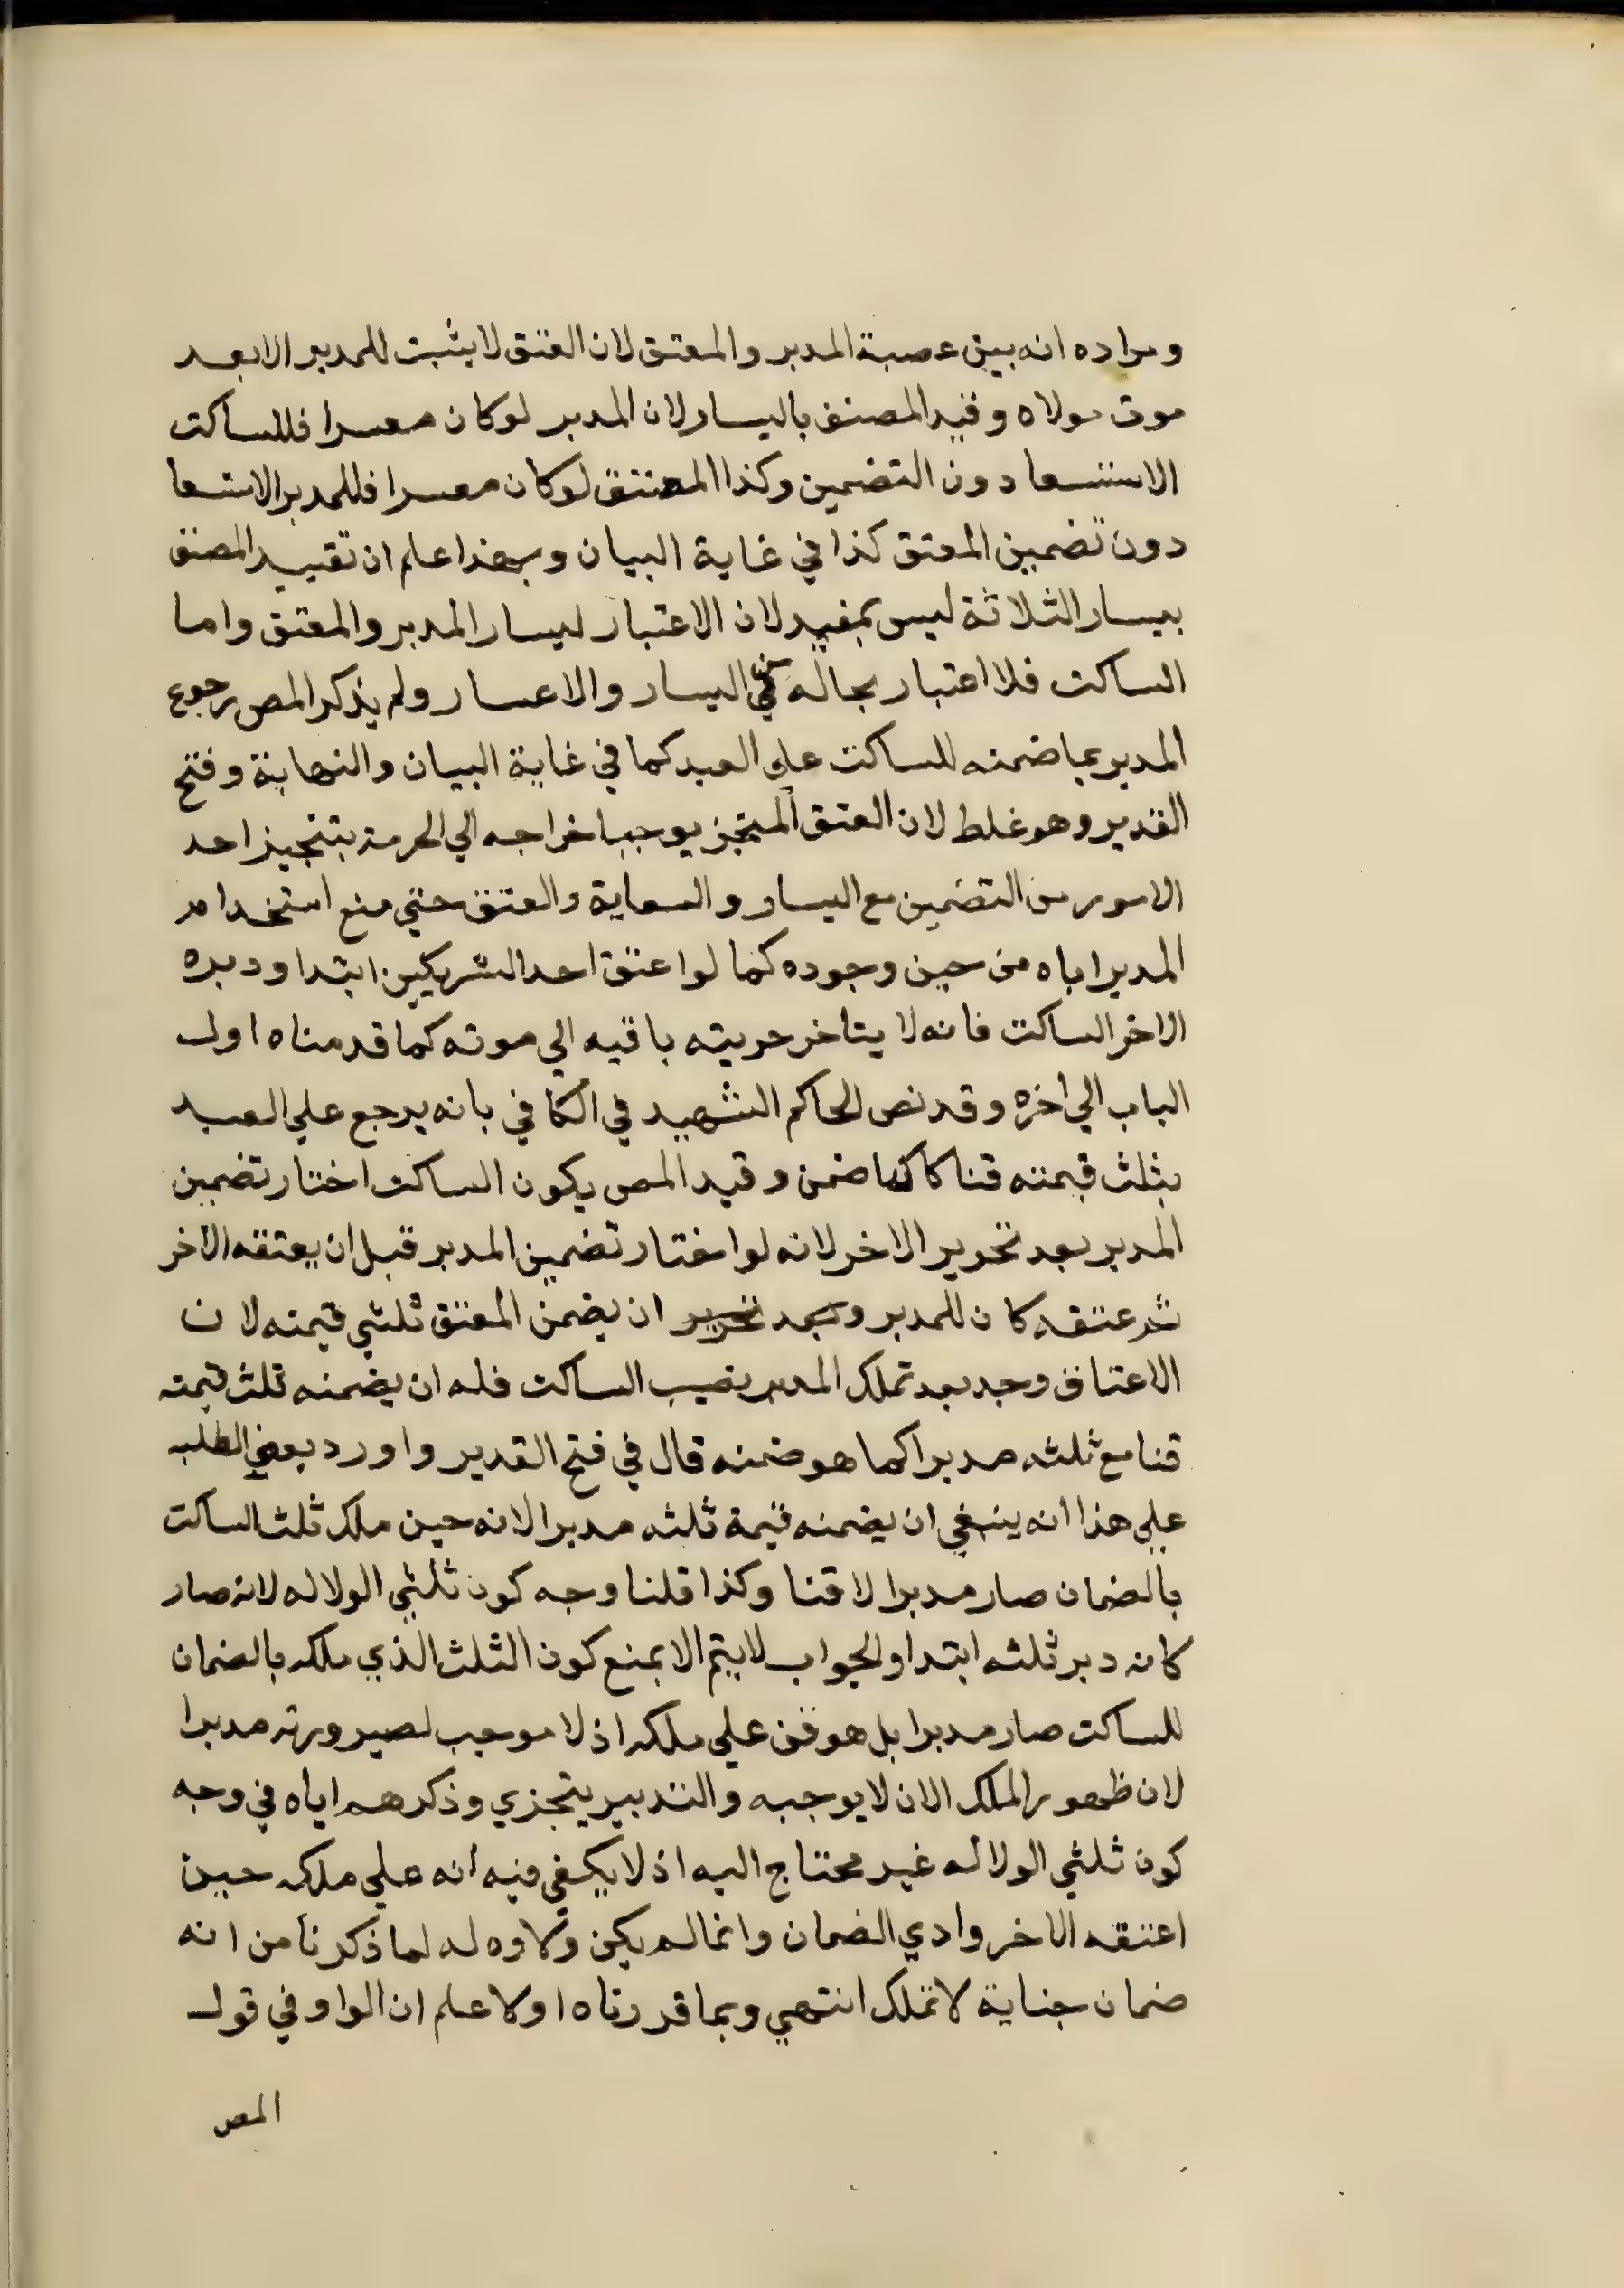 ومراده انه بين عصبة المدبر والمعتق لان العتق لا يثبت للمدبر الا بعد
موت مولاه وقيد المصنف باليسار لان المدبر لو كان معسرا فللساكت
الاستسعا دون التضمين وكذا المعتق لو كان معسرا فللمدبر الاستسعا
دون تضمين المعتق كذا في غاية البيان وبهذا علم ان تقييد المصنف
بيسار الثلاثة ليس بمفيد لان الاعتبار ليسار المدبر والمعتق واما
الساكت فلا اعتبار بحاله في اليسار والاعسار ولم يذكر المص رجوع
المدبر بما ضمنه للساكت علي العبد كما في غاية البيان والنهاية وفتح
القدير وهو غلط لان العتق المنجز يوجب اخراجه الي الحرمة بتنجيز احد
الامور من التضمين مع اليسار والسعاية والعتق حتي منع استخدام
المدبر اياه من حين وجوده كما لو اعتق احد الشريكين ابتدا ودبره
الاخر الساكت فانه لا يتاخر حريته باقيه الي موته كما قدمناه اول
الباب الي اخره وقد نص الحاكم الشهيد في الكافي بانه يرجع علي العبد
بثلث قيمته قنا كما ضمن وقيد المص بكون الساكت اختار تضمين
المدبر بعد تحرير الاخر لانه لو اختار تضمين المدبر قبل ان يعتقه الاخر
ثم عتقه كان للمدبر وبعد تحرير ان يضمن المعتق ثلثي قيمته لان
الاعتاق وجد بعد تملك المدبر نصيب الساكت فله ان يضمنه ثلث قيمته
قنا مع ثلثه مدبرا كما هو ضمنه قال في فتح القدير واورد بعض الطلبه
علي هذا انه ينبغي ان يضمنه قيمة ثلثه مدبرا لانه حين ملك ثلث الساكت
بالضمان صار مدبرا لا قنا وكذا قلنا وجه كون ثلثي الولا له لانه صار
كانه دبر ثلثه ابتدا والجواب لا يتم الا بمنع كون الثلث الذي ملكه بالضمان
للساكت صار مدبرا بل هو قن علي ملكه اذ لا موجب لصيرورته مدبرا
لان ظهور الملك الان لا يوجبه والتدبير يتجزي وذكرهم اياه في وجه
كون ثلثي الولا له غير محتاج اليه اذ لا يكفي فيه انه علي ملكه حين
اعتقه الاخر وادي الضمان وانما لم يكن ولاوه له لما ذكرنا من انه
ضمان جناية لا تملك انتهي وبما قررناه اولا علم ان الواو في قول
المص